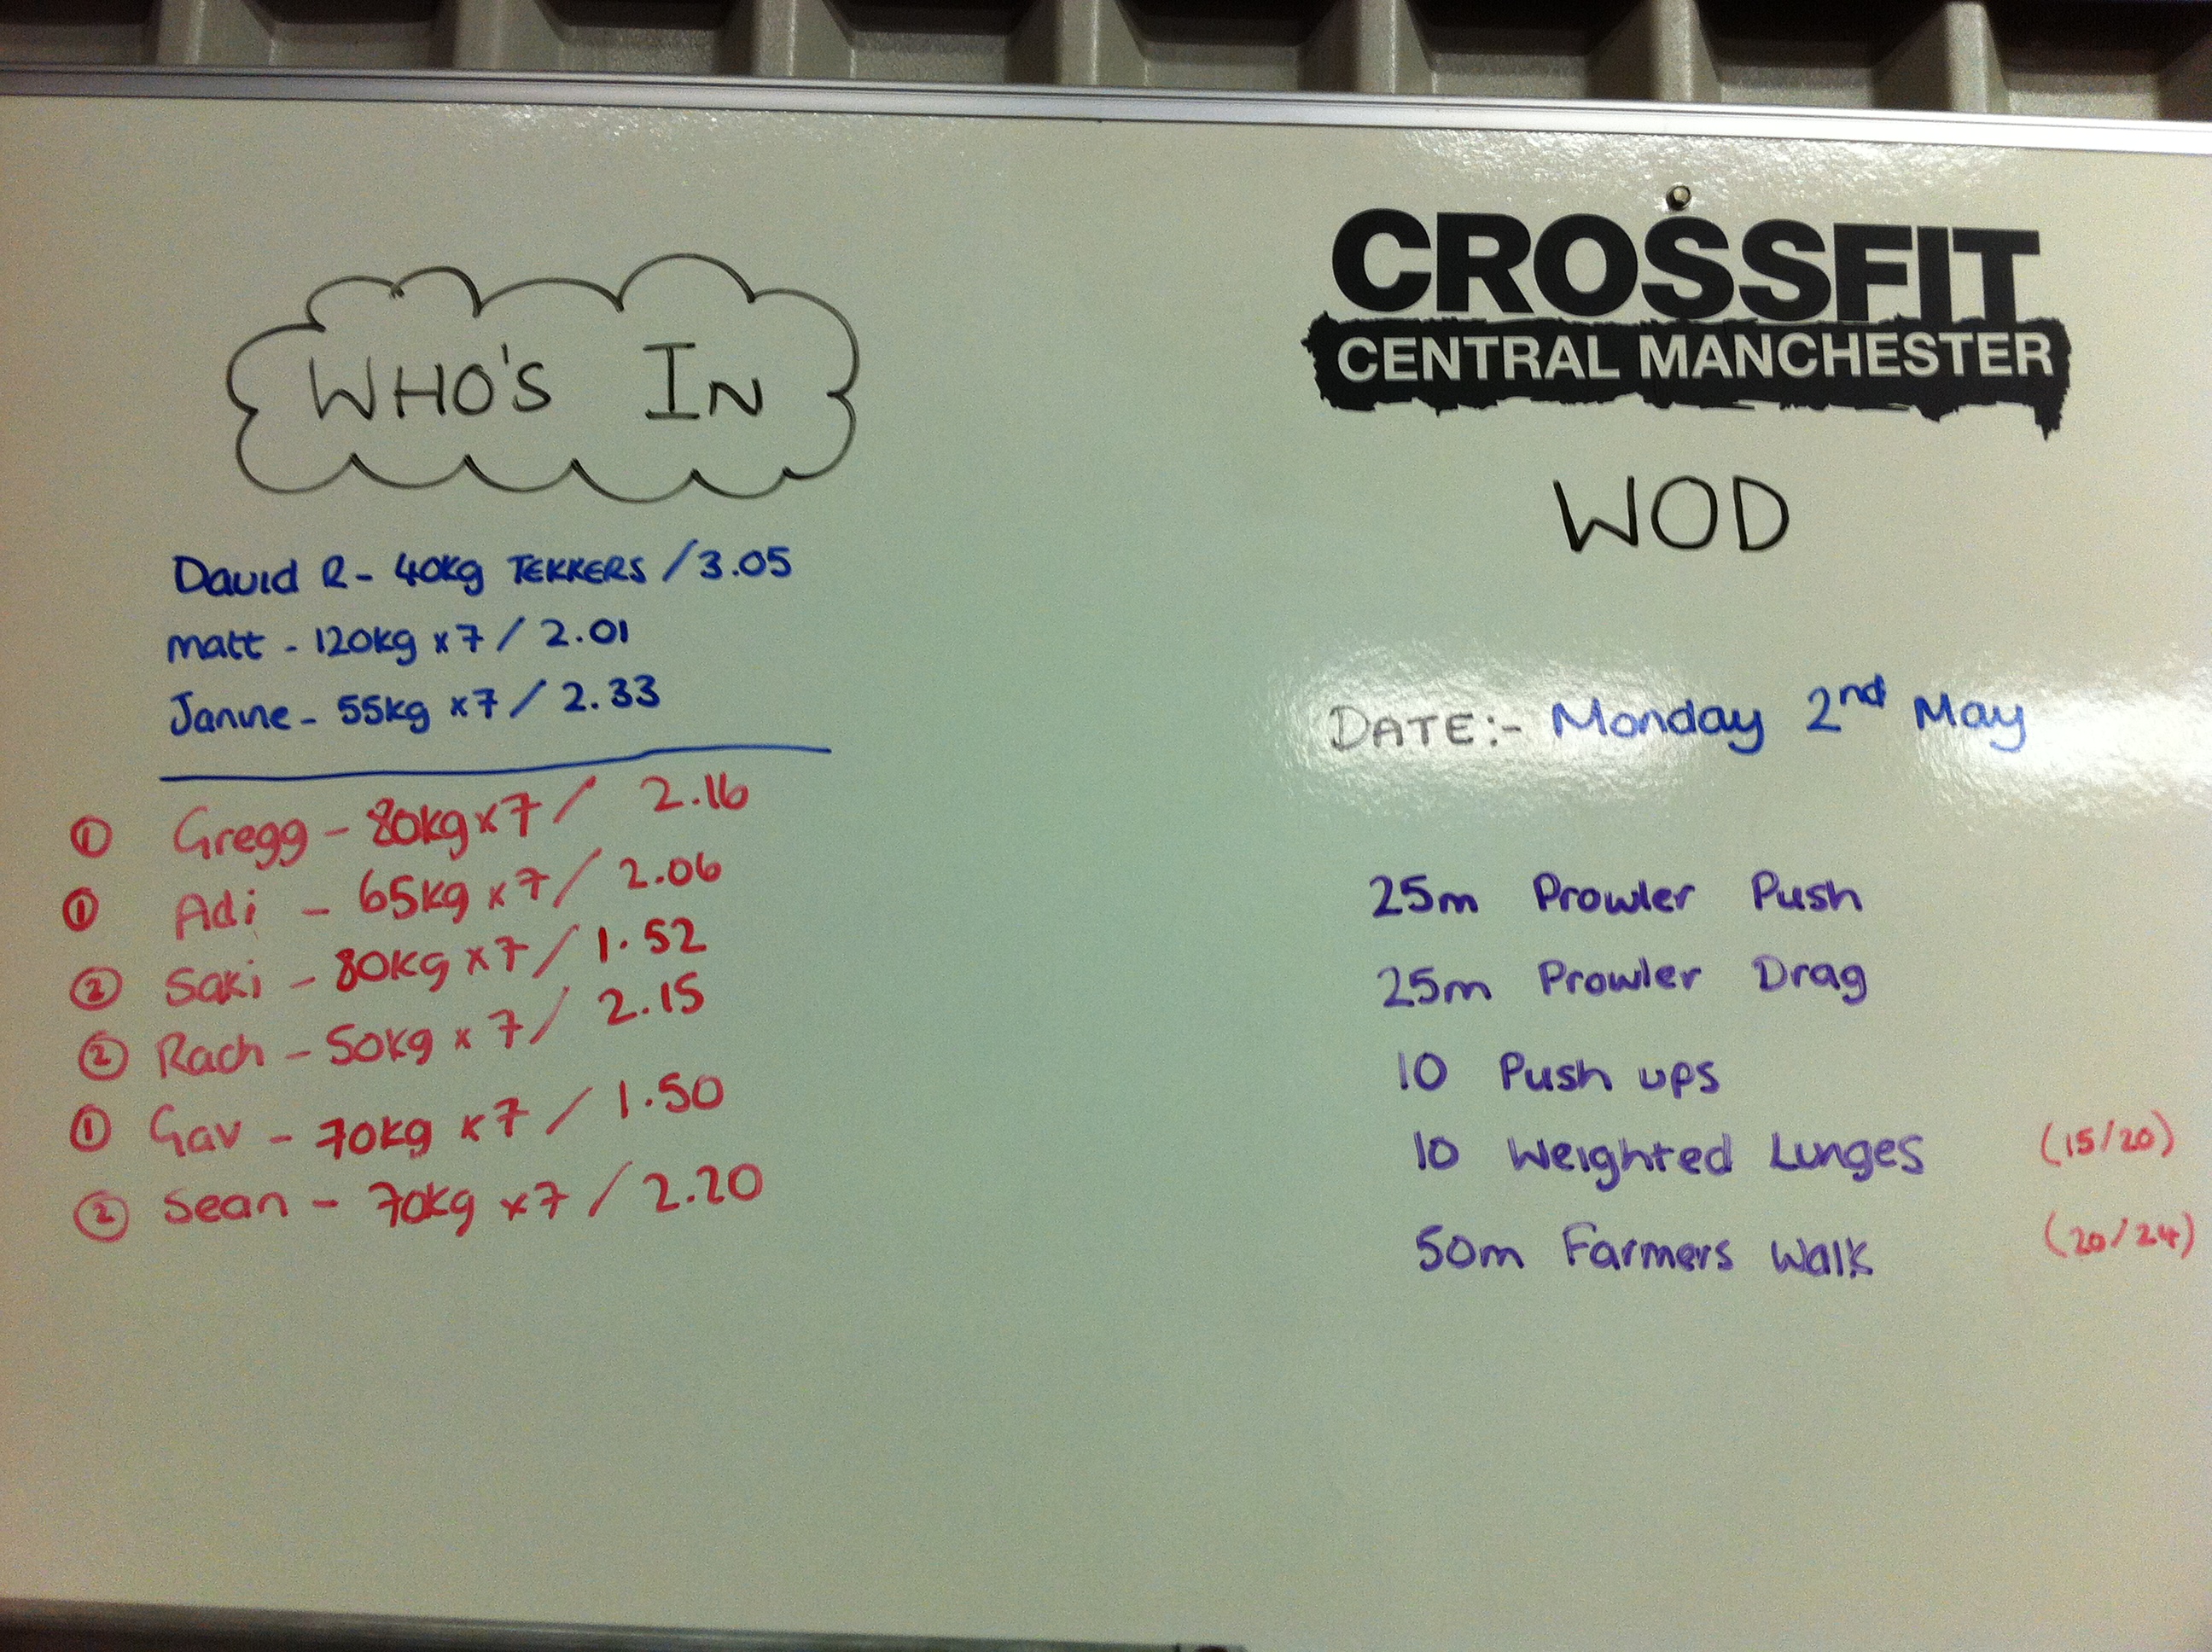 WHO'S IN
David R - 40kg TEKKERS / 3.05
Matt - 120kg x7 / 2.01
Janine - 55kg x7 / 2.33
① Gregg - 80kg x7 / 2.16
① Adi - 65kg x7 / 2.06
② Saki - 80kg x7 / 1.52
② Rach - 50kg x 7 / 2.15
① Gav - 70kg x7 / 1.50
② Sean - 70kg x7 / 2.20
CROSSFIT
CENTRAL MANCHESTER
WOD
DATE:- Monday 2nd May
25m Prowler Push
25m Prowler Drag
10 Push ups
10 Weighted Lunges (15/20)
50m Farmers Walk (20/24)